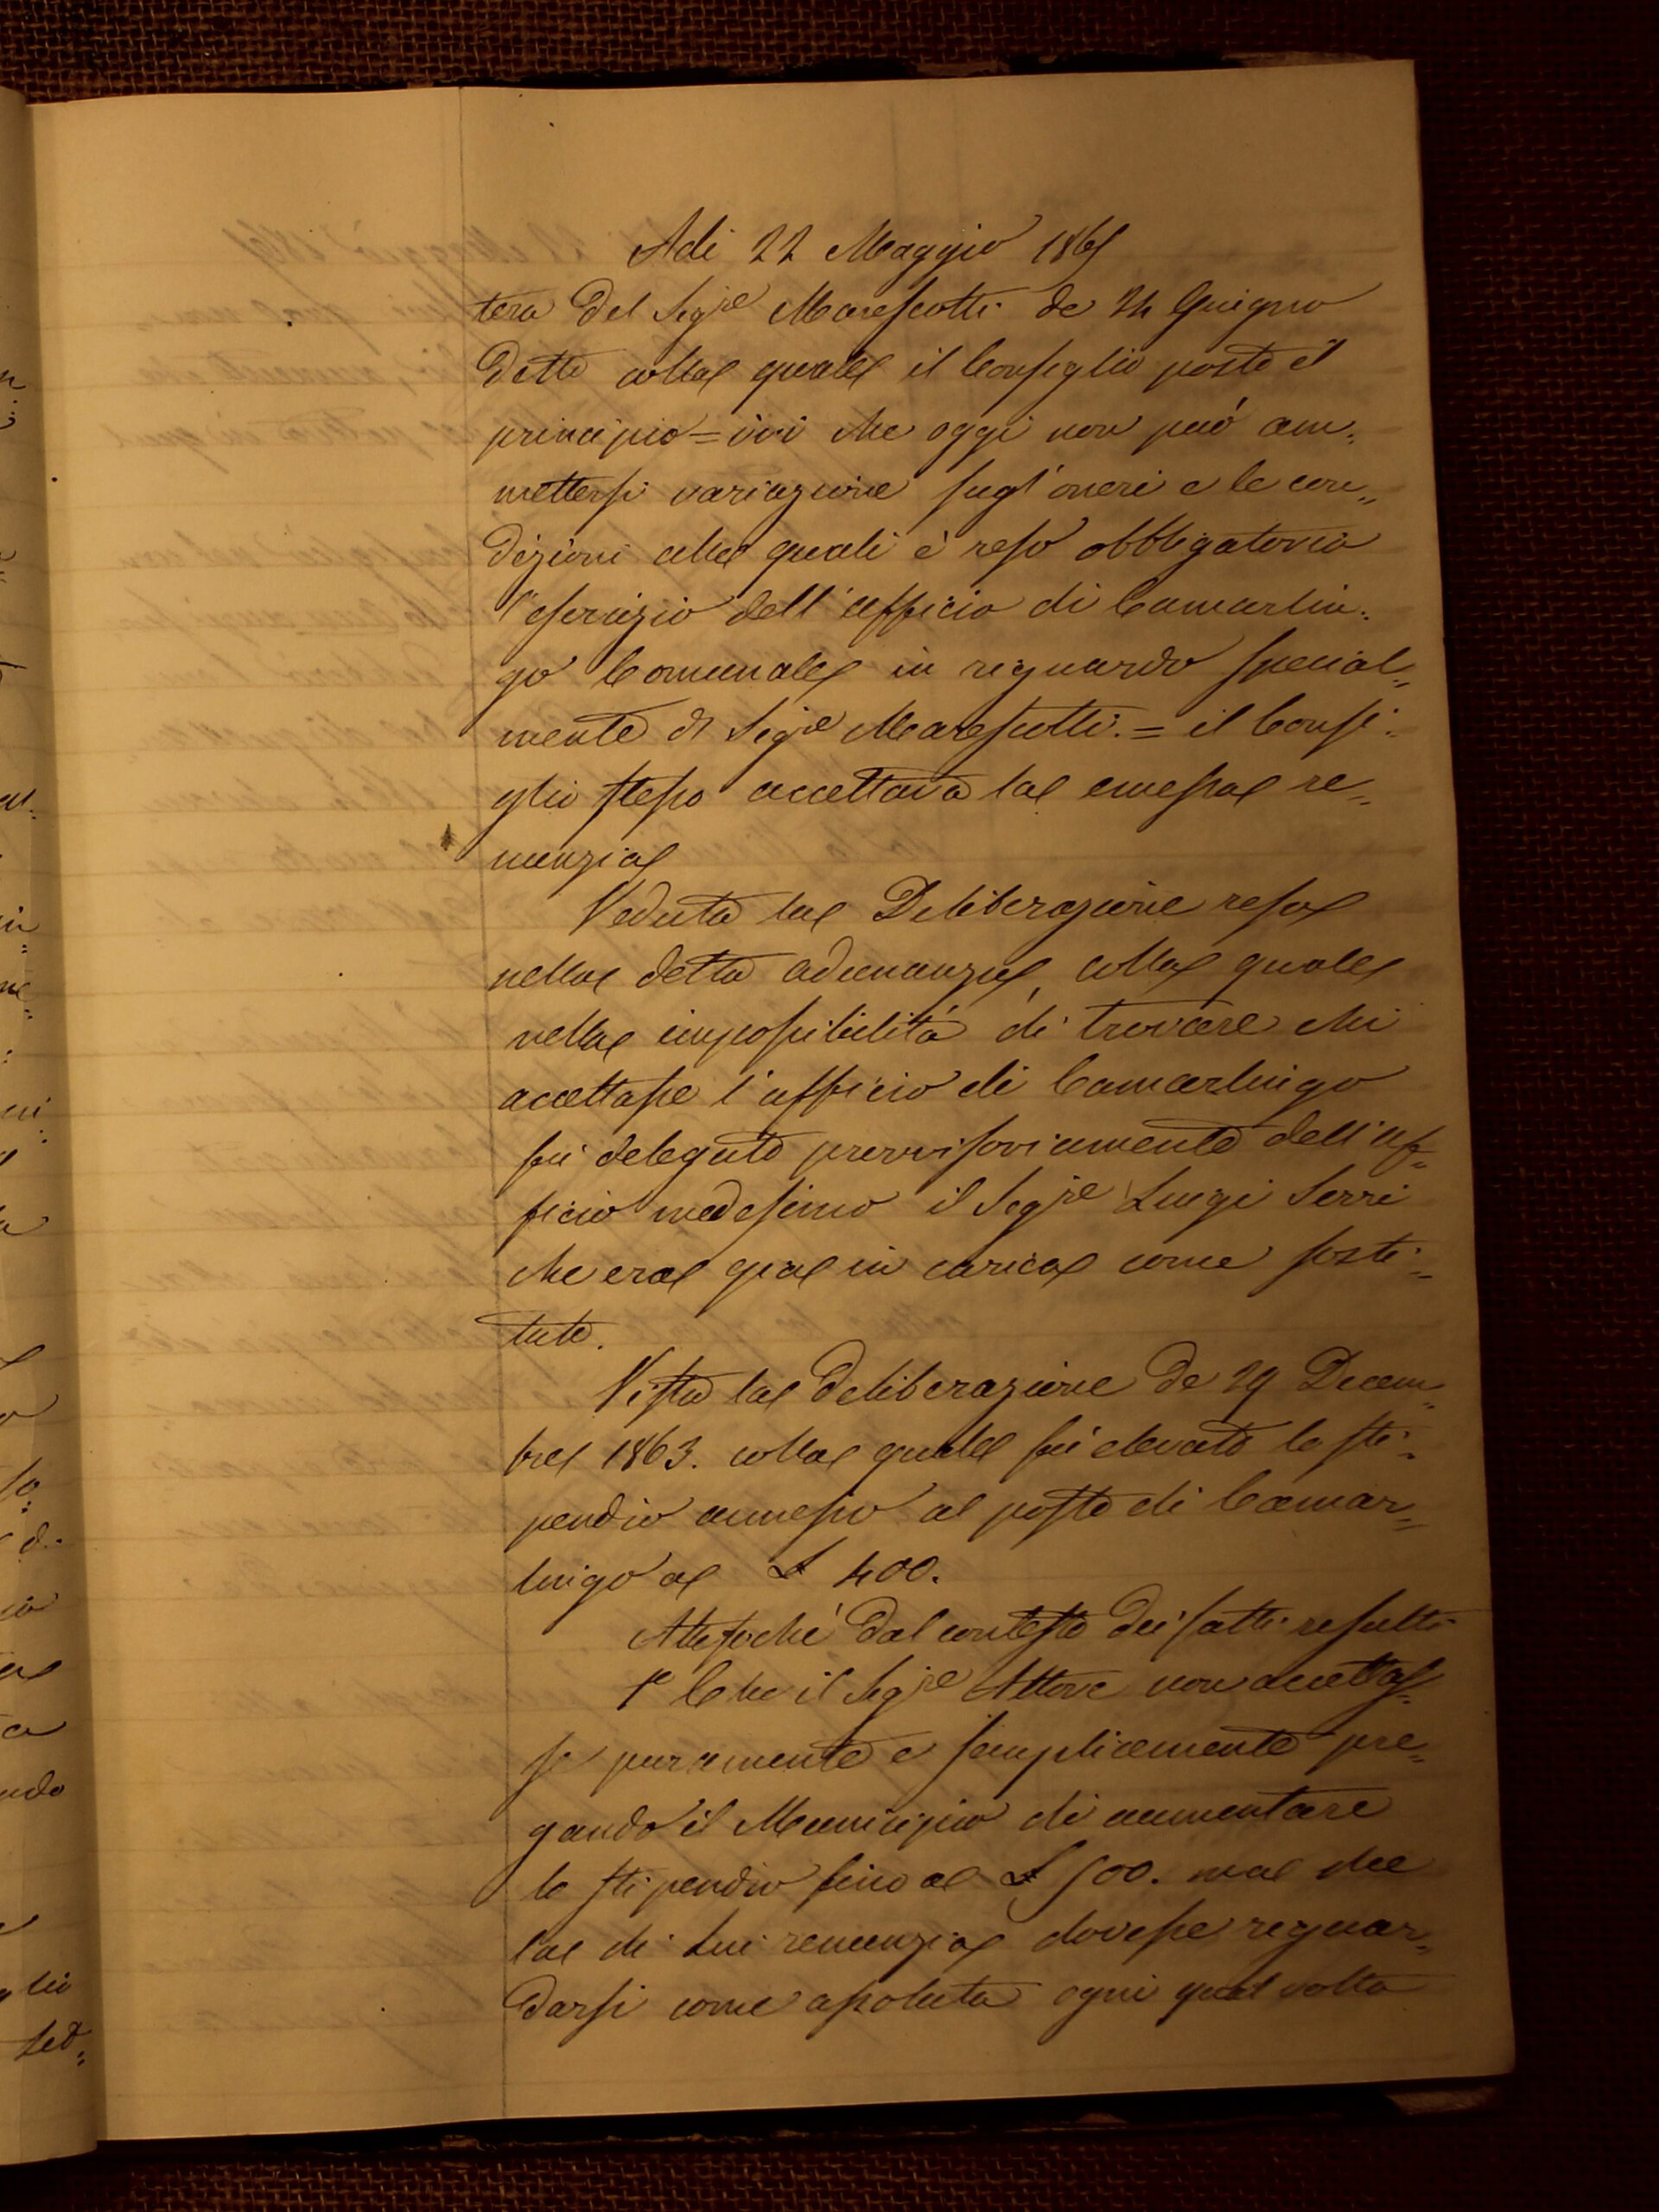 Adi 22 Maggio 1865
tera del Sig.re Marescotti de 24 Giugno
detto colla quale il Consiglio posto il
principio = ivi che oggi non può am:
mettersi variazione sugl'oneri e le con„
dizioni alle quali è reso obbligatorio
l'esercizio dell'ufficio di Camarlin:
go Comunale in riguardo special„
mente al Sig.re Marescotti. = il Consi:
glio stesso accettava la emessa re„
nunzia
Veduta la Deliberazione resa
nella detta adunanza, colla quale
nella impossibilità di trovare chi
accettasse l'ufficio di Camarlingo
fu delegato provvisoriamente dell'uf„
ficio medesimo il Sig.re Luigi Serri
che era già in carica come sosti„
tuto.
Vista la deliberazione de 29 Decem„
bre 1863. colla quale fu elevato lo sti„
pendio annesso al posto di Camar„
lingo a £ 400.
Attesoché dal contesto dei fatti resulti
1° Che il Sig.re Attore non accettas„
se puramente e semplicemente pre„
gando il Municipio di aumentare
lo stipendio fino a £ 500. ma che
la di Lui renunzia dovesse reguar„
darsi come assoluta ogni qual volta